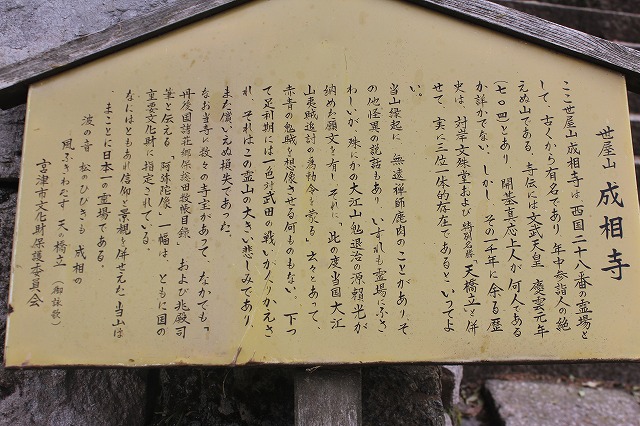 世屋山 成相寺
ここ世屋山成相寺は西国二十八番の霊場と
して、古くから有名であり年中参詣人の絶
えぬ山である。寺伝には文武天皇 慶雲元年
(七〇四)とあり、開基真応上人が何人である
か詳かでない。しかし、その一千年に余る歴
史は、対岸文殊堂および特別名勝天橋立と併
せて、実へ三位一体的存在であるといってよ
い。
当山縁起に、無遠禅師鹿肉のことがあり、そ
の他怪異の説話もあり、いずれも霊場にふさ
わしいが、殊にかの大江山鬼退治の源頼光が
納めた願文を有し、それに「此の度当国大江
山夷賊追討の為勅令を蒙る」云々とあって、
赤青の鬼賊を想像させる何ものもない。下っ
て足利期には一色対武田の戦いが入りかえさ
れ、それはこの霊山の大きい悲しみであり
また償いえぬ損失であった。
なお当寺に数々の寺宝があって、なかでも「
丹後国諸荘郷保総田数帳目録」および兆殿司
筆と伝える「阿弥陀像」一幅は、ともに国の
重要文化財に指定されている。
なにはともあれ信仰と景観を併せえた当山は
まことに日本一の霊場である。
波の音 松のひびきも 成相の
風ふきわたす 天の橋立 (御詠歌)
宮津市文化財保護委員会